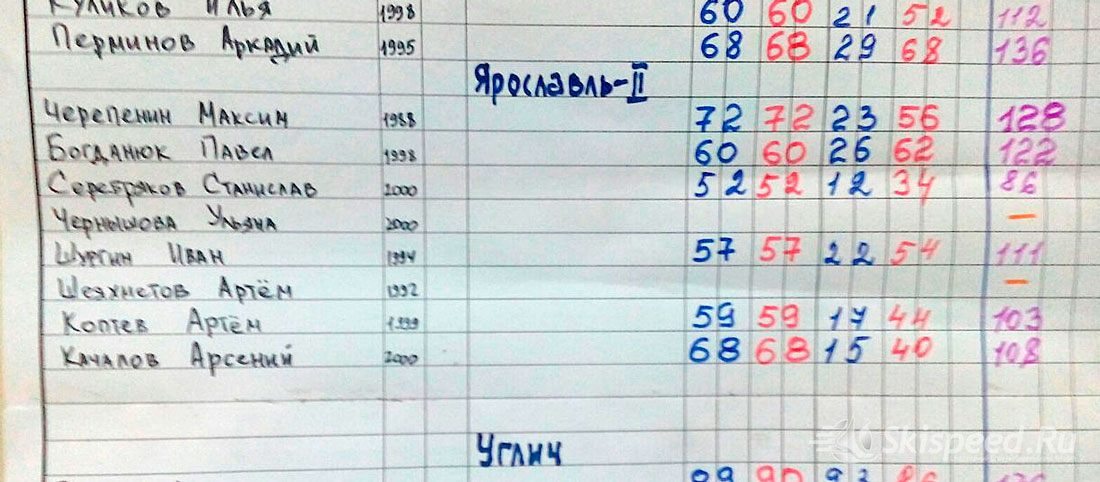 Куликов Илья 1998 60 60 21 52 112
Перминов Аркадий 1995 68 68 29 68 136
Ярославль-II
Черепенин Максим 1988 72 72 23 56 128
Богданюк Павел 1998 60 60 26 62 122
Серебряков Станислав 2000 52 52 12 34 86
Чернышова Ульяна 2000 —
Шургин Иван 1994 57 57 22 54 111
Шеяхметов Артём 1992 —
Коптев Артём 1999 59 59 17 44 103
Качалов Арсений 2000 68 68 15 40 108
Углич
Skispeed.Ru